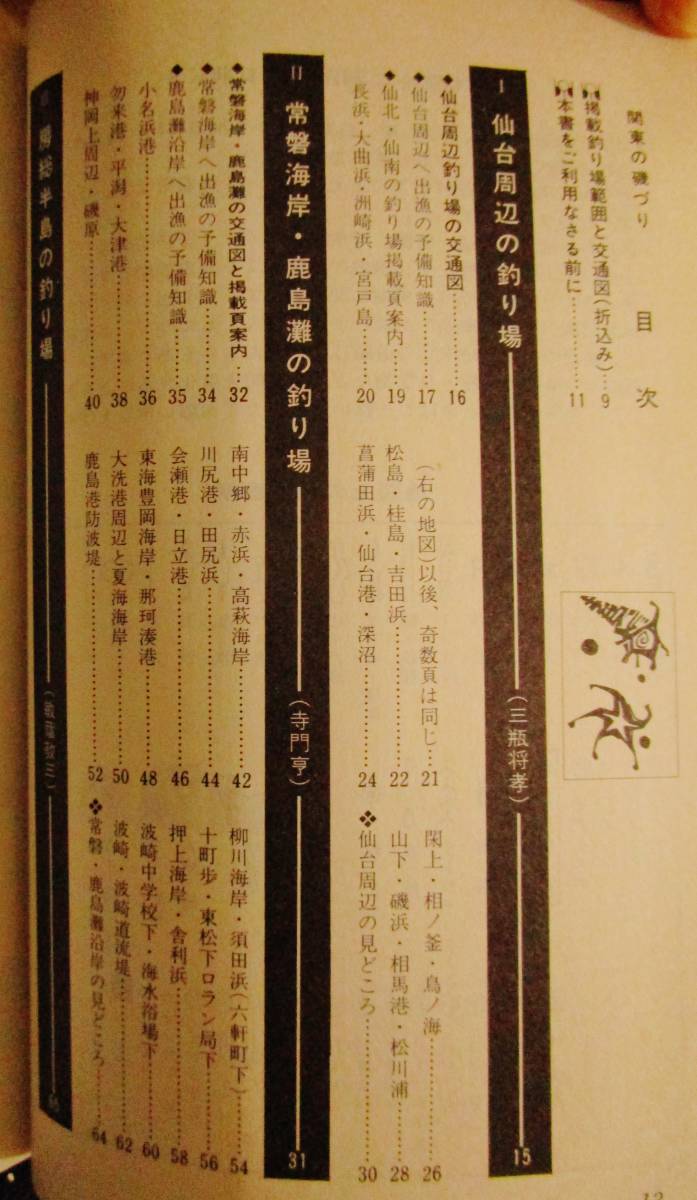 関東の磯づり
目次
掲載釣り場範囲と交通図(折込み)…9
本書をご利用なさる前に…………11
I 仙台周辺の釣り場――(三瓶将孝)――15
◆仙台周辺釣り場の交通図………16
◆仙台周辺へ出漁の予備知識………17
◆仙北・仙南の釣り場掲載頁案内………19
長浜・大曲浜・洲崎浜・宮戸島………20
(右の地図)以後、奇数頁は同じ…21
松島・桂島・吉田浜………22
菖蒲田浜・仙台港・深沼………24
閖上・相ノ釜・鳥ノ海………26
山下・磯浜・相馬港・松川浦………28
❖仙台周辺の見どころ………30
II 常磐海岸・鹿島灘の釣り場――(寺門亨)――31
◆常磐海岸・鹿島灘の交通図と掲載頁案内…32
◆常磐海岸へ出漁の予備知識………34
◆鹿島灘沿岸へ出漁の予備知識………35
小名浜港………36
勿来港・平潟・大津港………38
神岡上周辺・磯原………40
南中郷・赤浜・高萩海岸………42
川尻港・田尻浜………44
会瀬港・日立港………46
東海豊岡海岸・那珂湊港………48
大洗港周辺と夏海海岸………50
鹿島港防波堤………52
柳川海岸・須田浜(六軒町下)………54
十町歩・東松下ロラン局下………56
押上海岸・舎利浜………58
波崎中学校下・海水浴場下………60
波崎・波崎道流堤………62
❖常磐・鹿島灘沿岸の見どころ………64
房総半島の釣り場